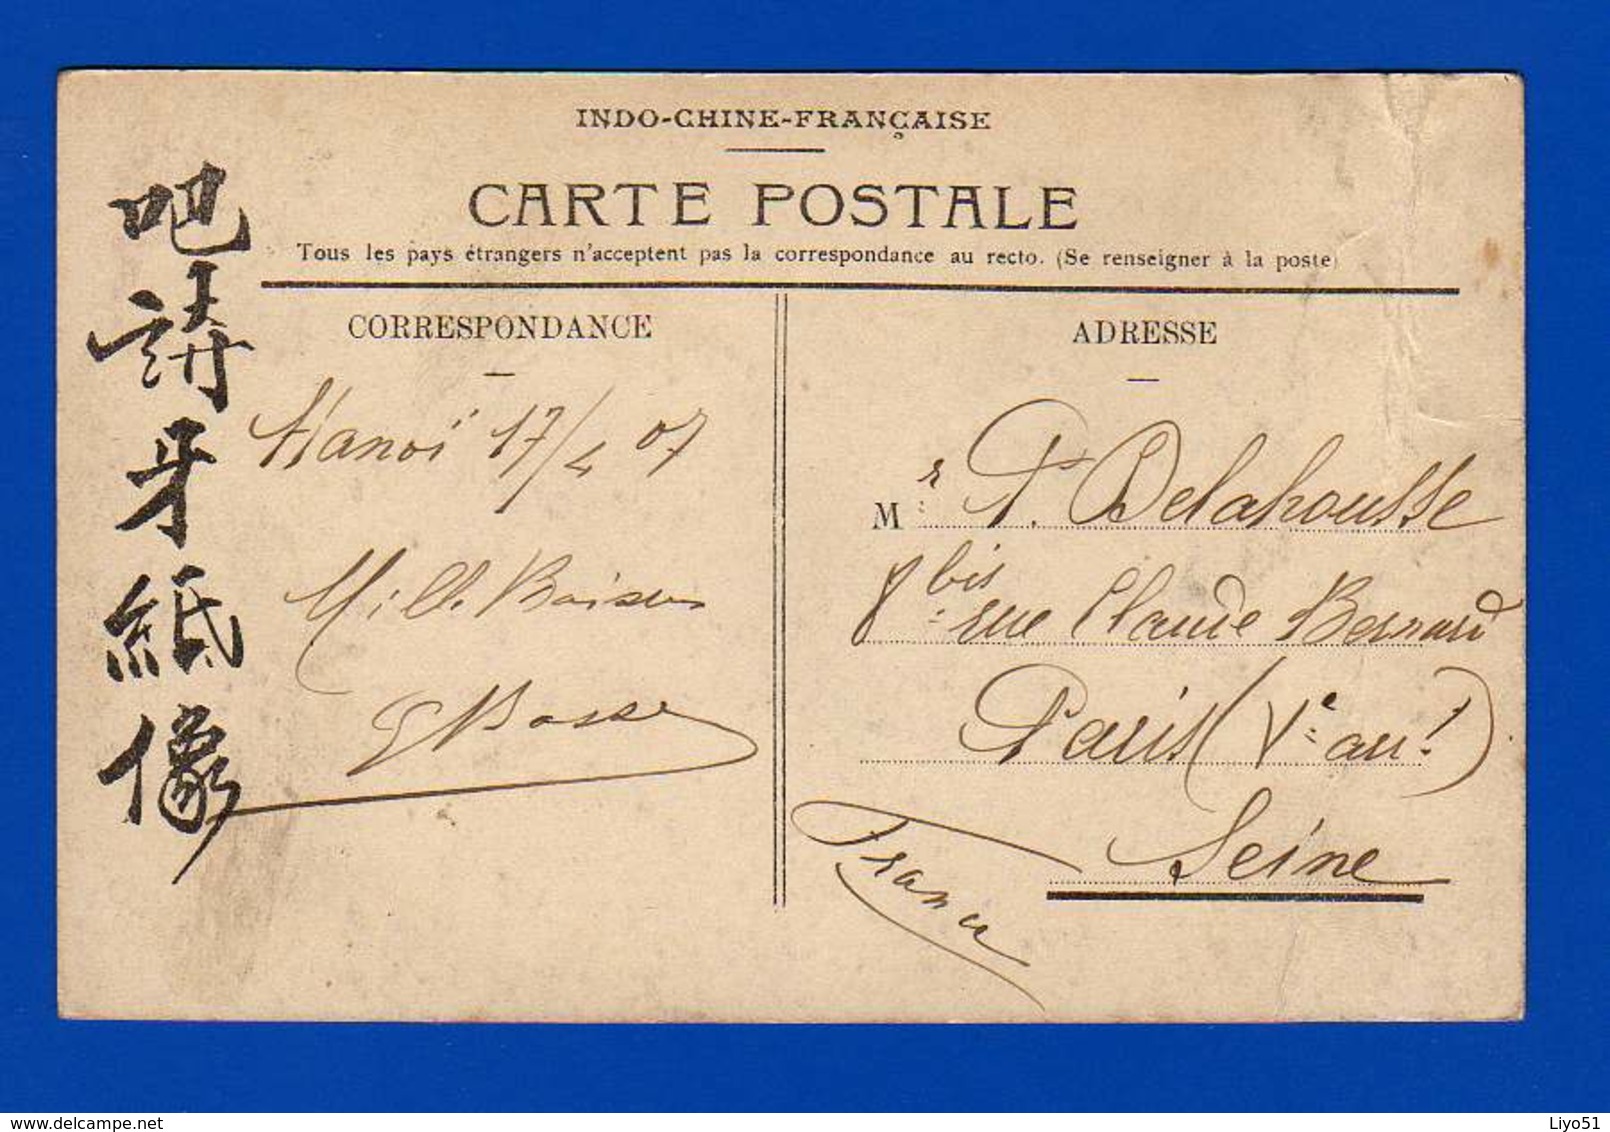 INDO-CHINE-FRANÇAISE
CARTE POSTALE
Tous les pays étrangers n'acceptent pas la correspondance au recto. (Se renseigner à la poste)
吧
請
牙
紙
像
CORRESPONDANCE
Hanoï 17/4 07
Mille Baisers
ADRESSE
Mr P. Delahousse
8 bis rue Claude Bernard
Paris (Ve arrt)
Seine
France
Liyo51